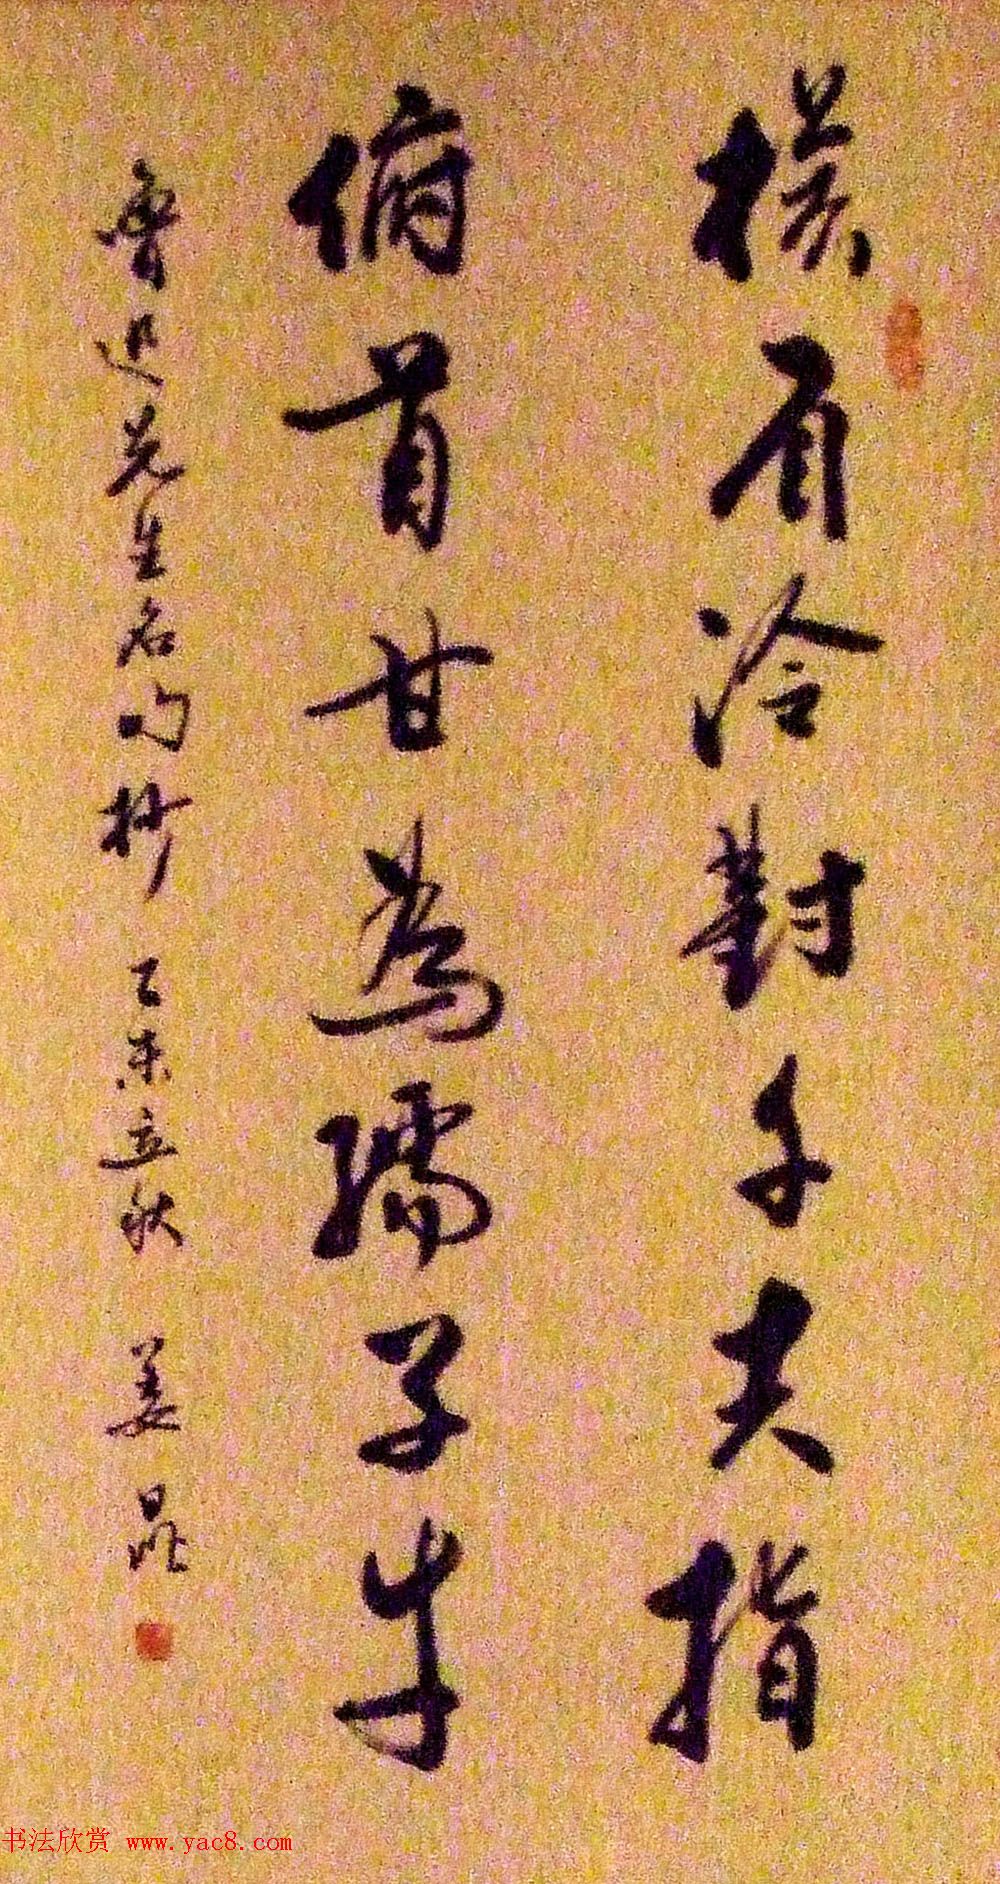 横眉冷對千夫指
俯首甘為孺子牛
魯迅先生名句抄 乙未立秋 姜昆
书法欣赏 www.yac8.com